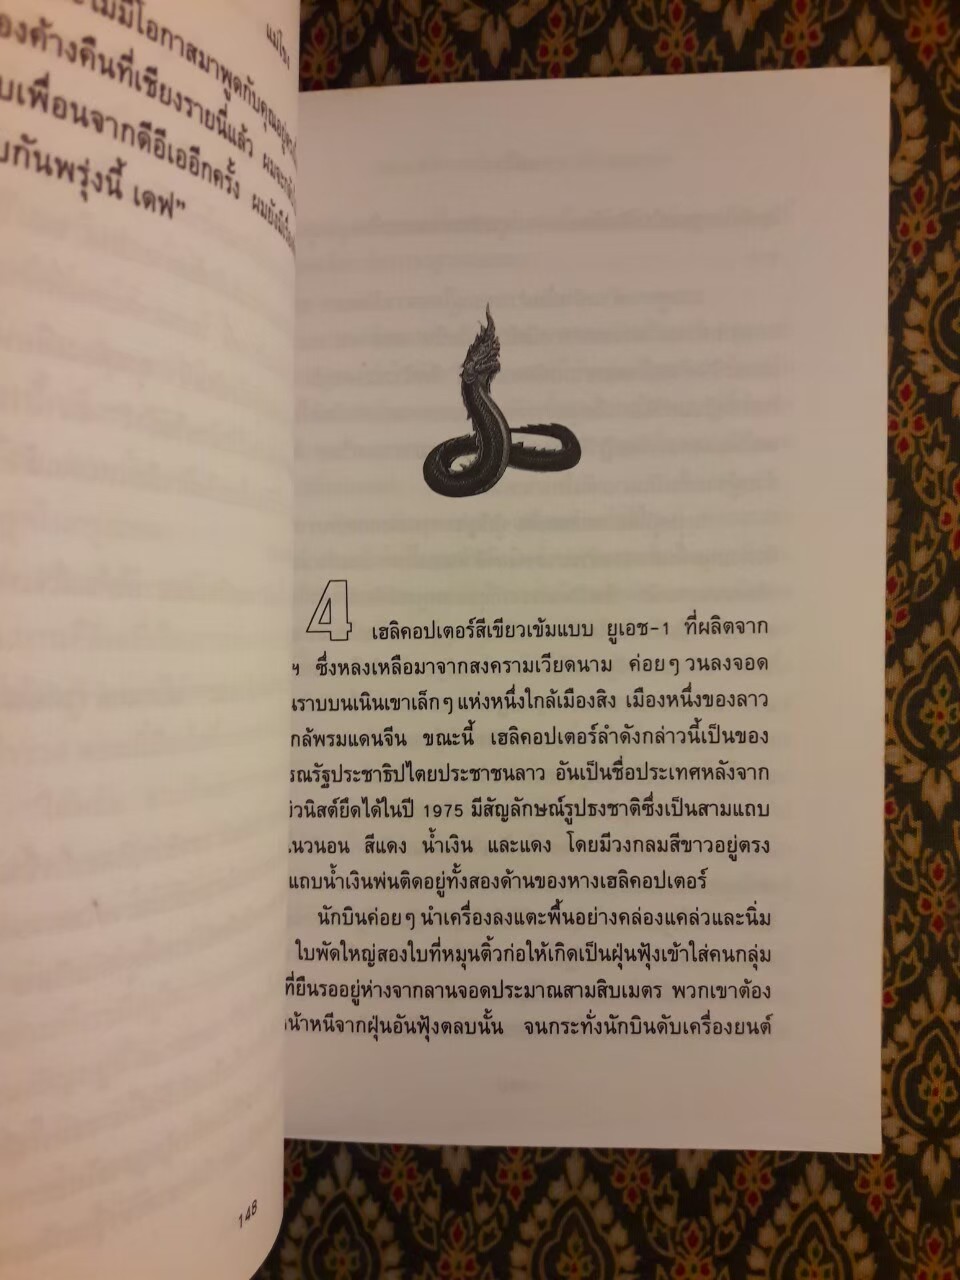 ไม่มีโอกาสมาพูดกับคุณ
องค้างคืนที่เชียงรายนี้แล้ว
บเพื่อนจากดีอีเออีกครั้ง
บกันพรุ่งนี้ เดฟ"
148
4 เฮลิคอปเตอร์สีเขียวเข้มแบบ ยูเอช-1 ที่ผลิตจาก
ฯ ซึ่งหลงเหลือมาจากสงครามเวียดนาม ค่อยๆ วนลงจอด
นราบบนเนินเขาเล็กๆ แห่งหนึ่งใกล้เมืองสิง เมืองหนึ่งของลาว
กล้พรมแดนจีน ขณะนี้ เฮลิคอปเตอร์ลำดังกล่าวนี้เป็นของ
รณรัฐประชาธิปไตยประชาชนลาว อันเป็นชื่อประเทศหลังจาก
มิวนิสต์ยึดได้ในปี 1975 มีสัญลักษณ์รูปธงชาติซึ่งเป็นสามแถบ
แนวนอน สีแดง น้ำเงิน และแดง โดยมีวงกลมสีขาวอยู่ตรง
แถบน้ำเงินพ่นติดอยู่ทั้งสองด้านของหางเฮลิคอปเตอร์
นักบินค่อยๆ นำเครื่องลงแตะพื้นอย่างคล่องแคล่วและนิ่ม
ใบพัดใหญ่สองใบที่หมุนติ้วก่อให้เกิดเป็นฝุ่นฟุ้งเข้าใส่คนกลุ่ม
ที่ยืนรออยู่ห่างจากลานจอดประมาณสามสิบเมตร พวกเขาต้อง
หน้าหนีจากฝุ่นอันฟุ้งตลบนั้น จนกระทั่งนักบินดับเครื่องยนต์